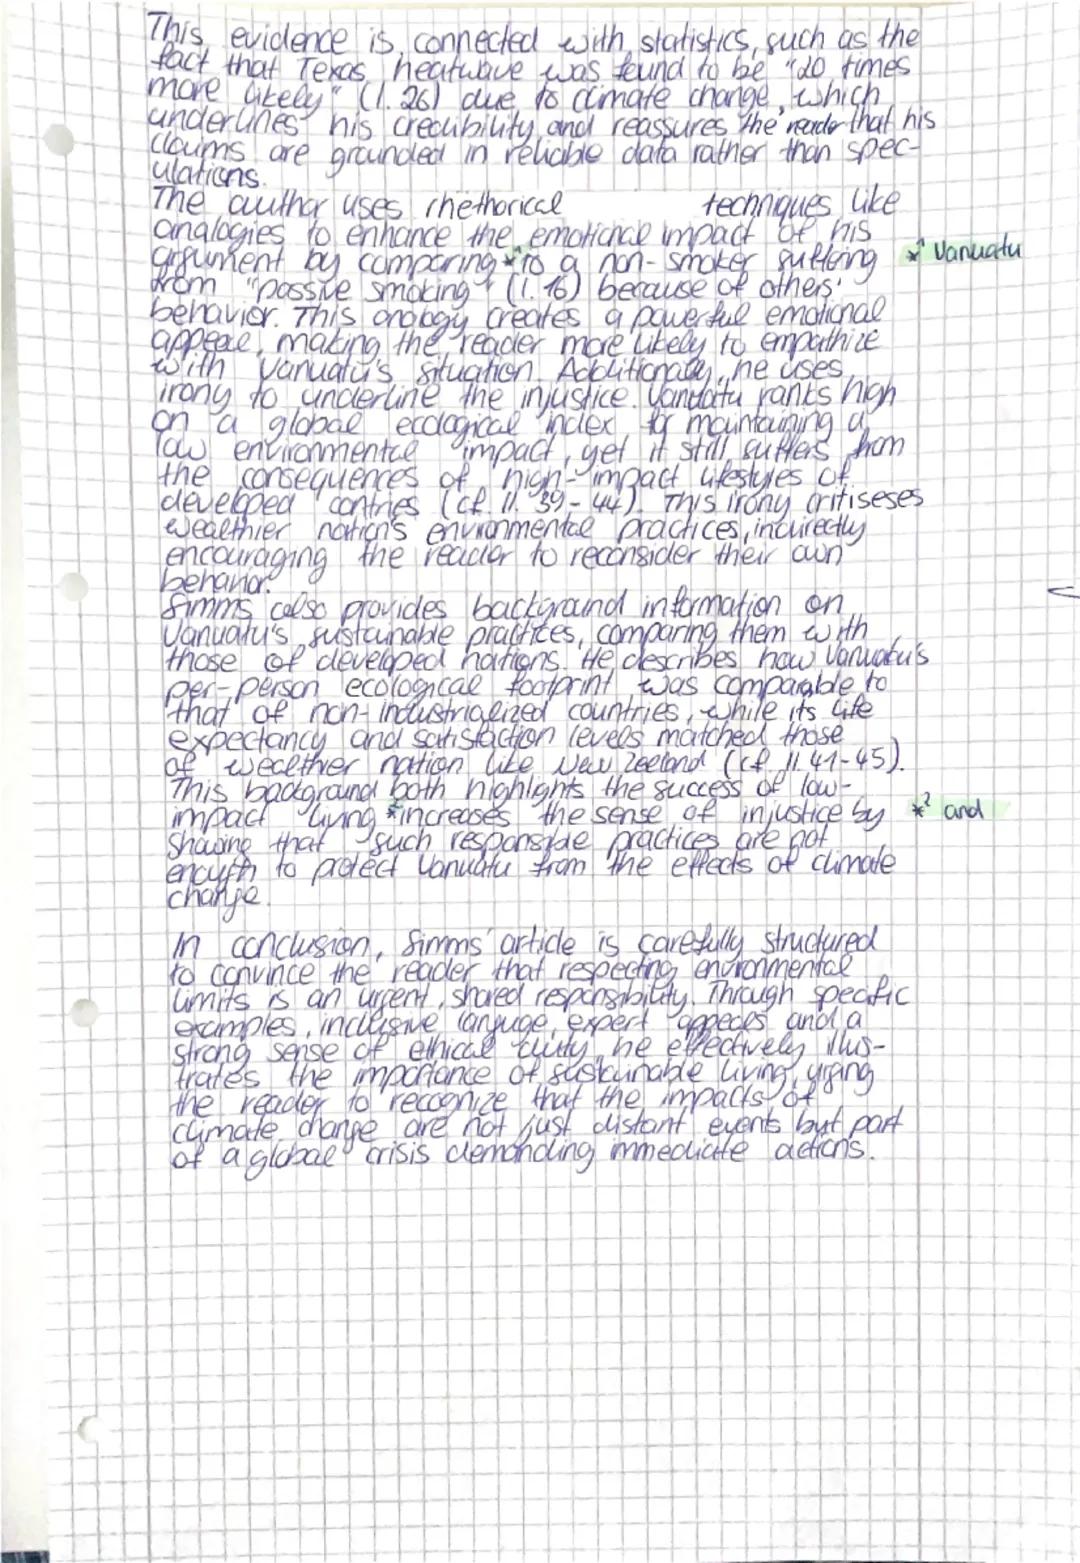 This evidence is connected with statistics, such as the
fact that Texas heatwave was found to be "20 times
more likely" (l. 26) due to climate change, which
underlines his credibility and reassures the reader that his
claims are grounded in reliable data rather than spec-
ulations.
The author uses rhethorical techniques like
analogies to enhance the emotional impact of his
argument by comparing *¹ to a non-smoker suffering *¹ Vanuatu
from "passive smoking" (l. 16) because of others'
behavior. This analogy creates a powerful emotional
appeal, making the reader more likely to empathize
with Vanuatu's situation. Additionally, he uses
irony to underline the injustice. Vanuatu ranks high
on a global ecological index for maintaining a
low environmental impact, yet it still suffers from
the consequences of high-impact lifestyles of
developed contries (cf. ll. 39-44). This irony critiseses
wealthier nation's environmental practices, indirectly
encouraging the reader to reconsider their own
behavior.
Simms also provides background information on
Vanuatu's sustainable practices, comparing them with
those of developed nations. He describes how Vanuatu's
per-person ecological footprint was comparable to
that of non-industrialized countries, while its life
expectancy and satisfaction levels matched those
of wealthier nation like New Zeeland (cf. ll. 41-45).
This background both highlights the success of low-
impact living *² increases the sense of injustice by *² and
showing that such responsible practices are not
enough to protect Vanuatu from the effects of climate
change.
In conclusion, Simms' article is carefully structured
to convince the reader that respecting environmental
limits is an urgent, shared responsibility. Through specific
examples, inclusive languge, expert appeals and a
strong sense of ethical duty, he effectively illus-
trates the importance of sustainable living, urging
the reader to recognize that the impacts of
climate change are not just distant events but part
of a global crisis demanding immediate actions.